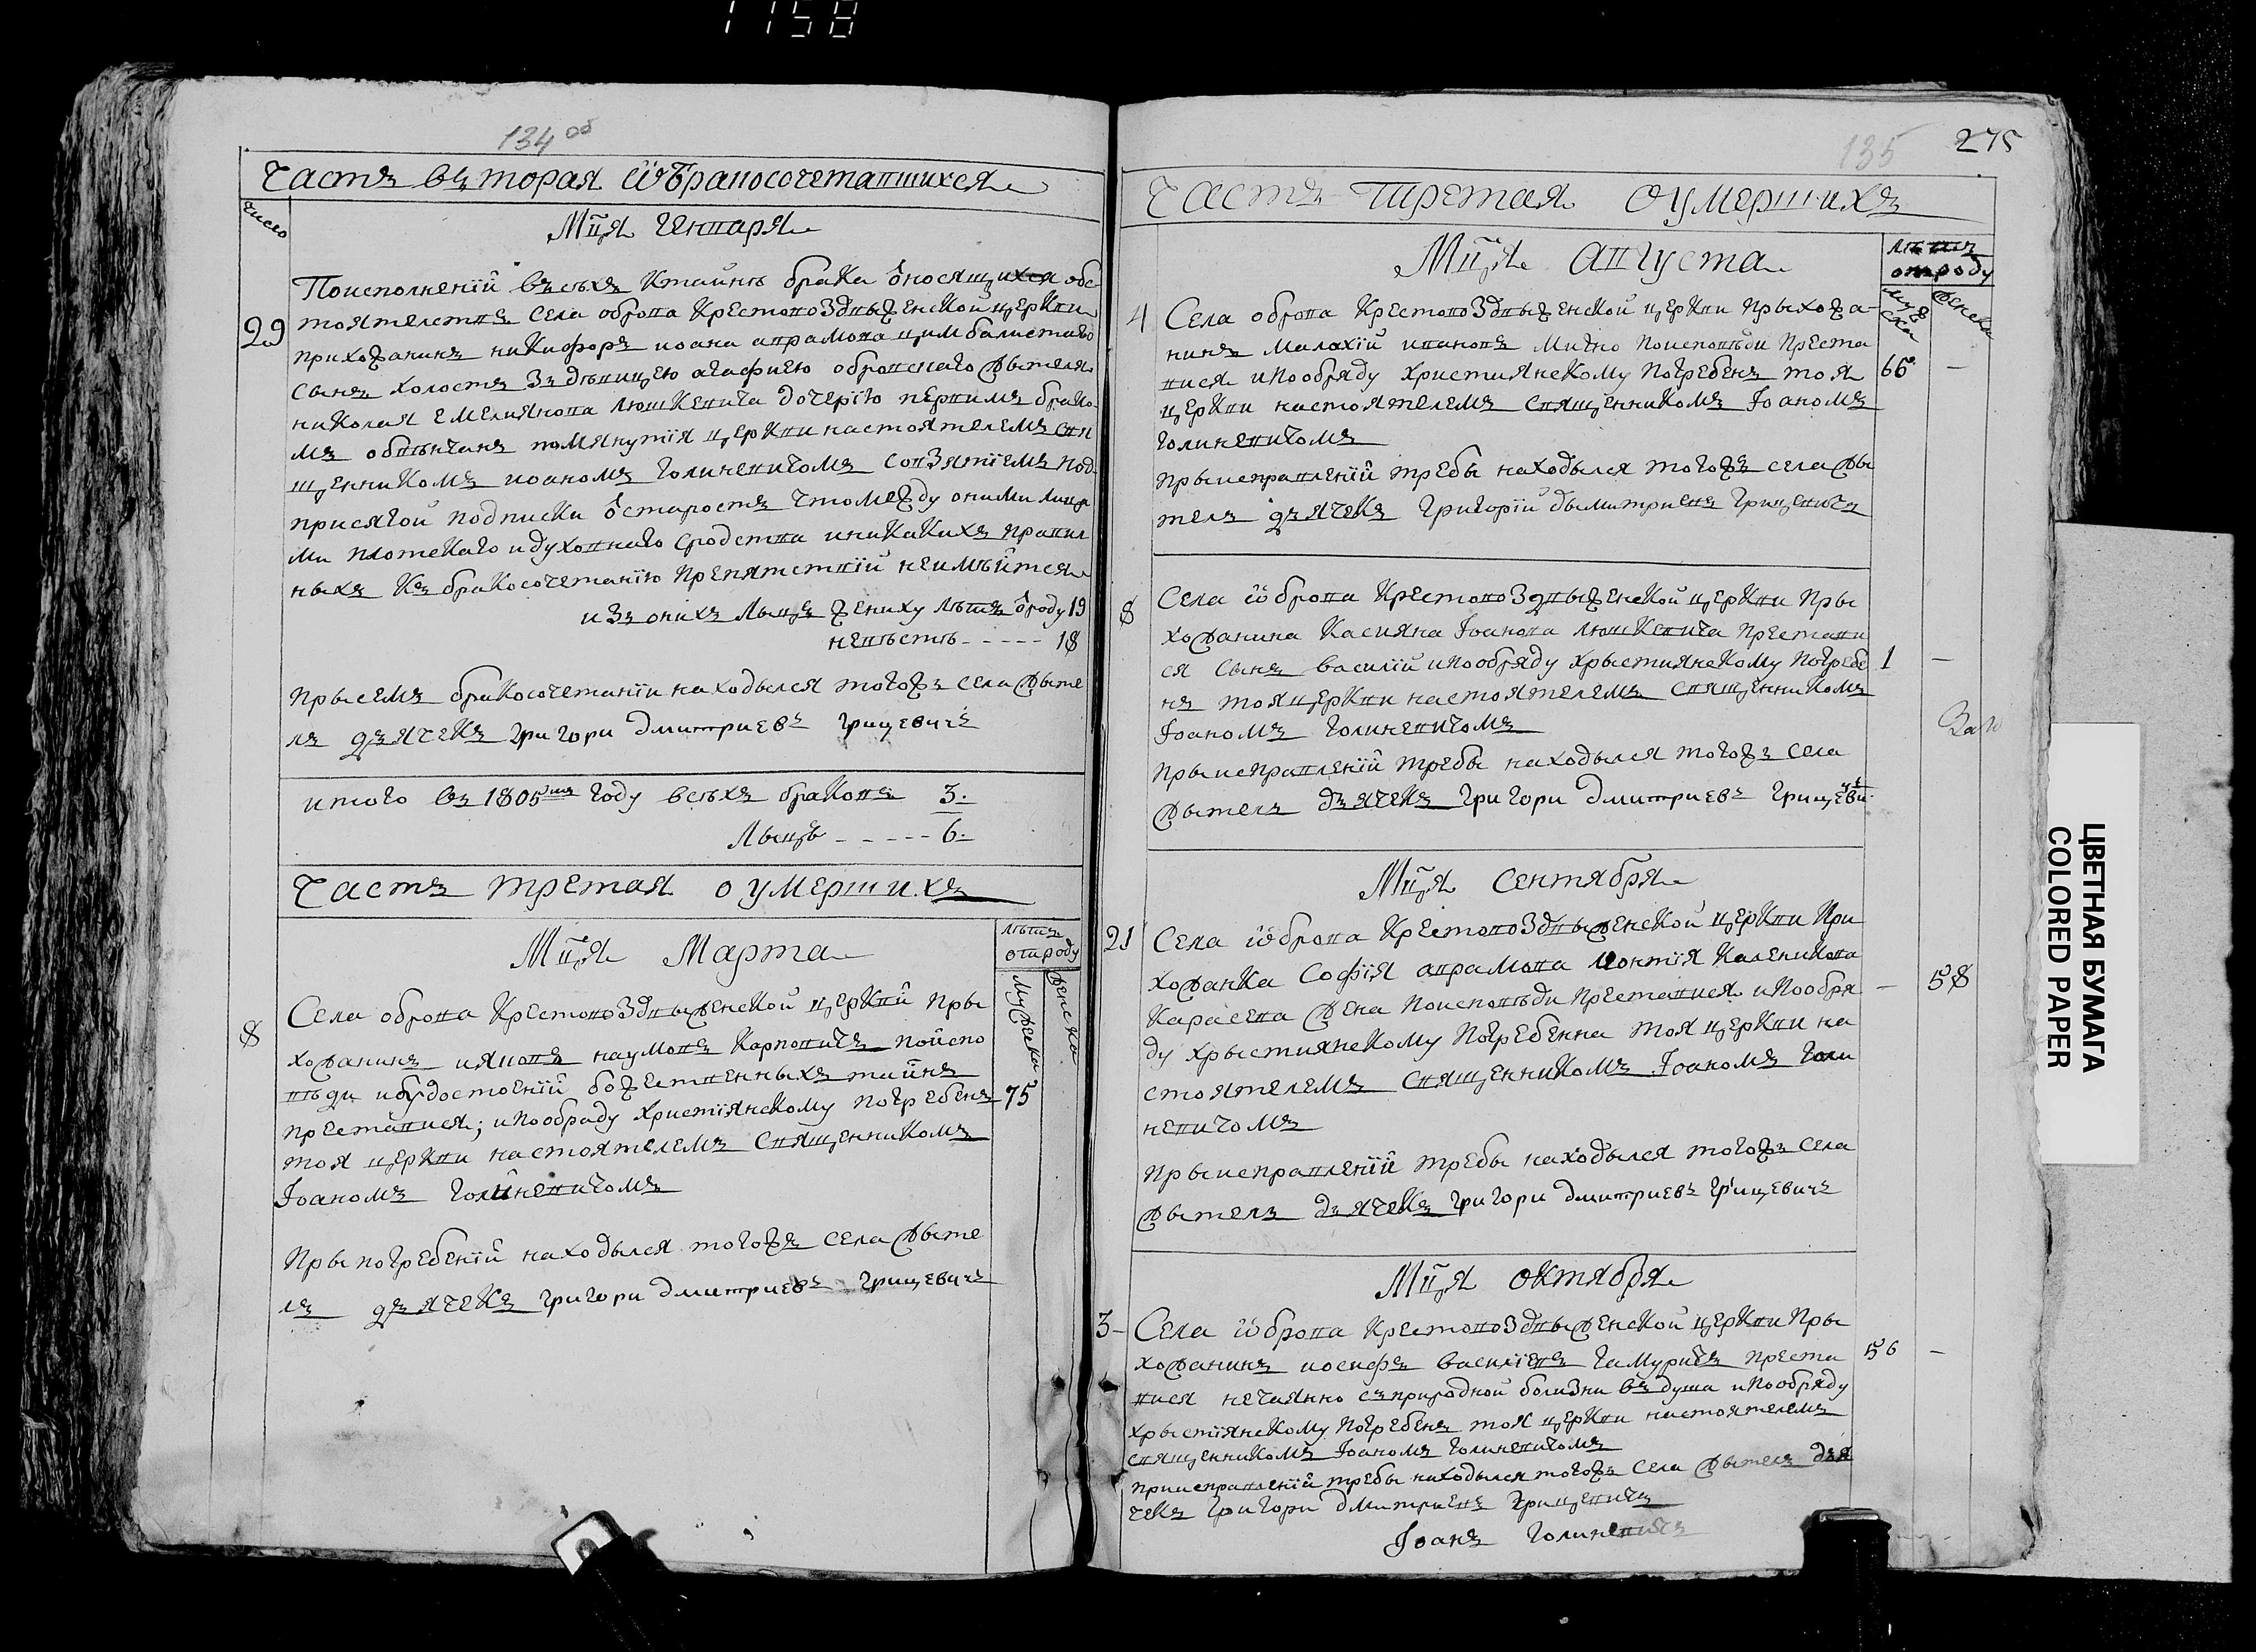 1158
134 об
Часть въторая ѿ Бракосочетавшихся
число
Мця Генваря
29
По исполненій въсехъ к тайнѣ брака ôносящихся обс
тоятелствъ села оброва Крестовоздвыженской церкви
прихожанинъ никифоръ иоана аврамова цимбалистаго
сынъ холостъ зъ дѣвицею агафиею обровского жителя
николая емелиянова люшкевича дочерію первимъ брако
мъ обвѣнчанъ помянутія церкви настоятелемъ свя
щенникомъ иоаномъ Голиневичомъ со взятіемъ под
присягой подписки ô старостъ что между оними лица
ми плотскаго и духовнаго сродства и никакихъ правил
ныхъ къ бракосочетанію препятствій не имѣйтся
изъ онихъ лыцъ жениху лѣтъ ôроду 19
невѣстѣ - - - - - 18
Пры семъ бракосочетаніи находылся тогожъ села жыте
ль дъячекъ григори дмитриевъ грицевичъ
итого въ 1805мъ году всѣхъ браковъ 3.
Лыцъ - - - - - 6.
Часть третая о умершихъ
Мця Марта
лѣтъ
отроду
мужска
женска
8
Села оброва Крестовоздвыженской церквй пры
хожанинъ ияковъ наумовъ Карповичъ по испо
вѣди и ôудостоеній божественныхъ тайнъ
преставися; и по обраду христіянскому погребенъ
75
тоя церкви настоятелемъ священникомъ
Іоаномъ Голиневичомъ
Пры погребеній находылся тогожъ села жыте
ль дъячекъ григори дмитриевъ грицевичъ
135
275
Часть третая о умершихъ
Мця августа
лѣтъ
отроду
мужска
женска
4
Села оброва Крестовоздвыженской церкви прыхожа-
нинъ малахій ивановъ Митно по исповѣди преста
вися и по обряду християнскому погребенъ тоя
66
-
церкви настоятелемъ священникомъ Іоаномъ
голиневичомъ
Пры исправленій требы находылся тогожъ села жы
тель дъячекъ григорій дымитриевъ грицевичъ
8
Села ѿброва Крестовоздвыженской церкви пры
хожанина Касияна Іоанова люшкевича престави
ся сынъ василій и по обряду хрыстиянскому погребе
1
-
нъ тоя церкви настоятелемъ священникомъ
Іоаномъ Голиневичомъ
Пры исправленій требы находылся тогожъ села
жытель дъячекъ григори дмитриевъ грицевичъ
Мця Сентября
21
Села ѿброва Крестовоздвыженской церкви при
хожанка Софія аврамова леонтія Каленикова
Карасева жена по исповѣди преставися и по обря
-
58
ду хрыстиянскому погребенна тоя церкви на
стоятелемъ священникомъ Іоаномъ голи
невичомъ
Пры исправленій требы находылся тогожъ села
жытель дъячекъ григори дмитриевъ грицевичъ
Мця октября
3
Села ѿброва Крестовоздвыженской церкви пры
хожанинъ иосифъ василіевъ гамуричъ преста
56
-
вися нечаянно съ природной болизни въ душа и по обряду
хрыстіянскому погребенъ тоя церкви настоятелемъ
священникомъ Іоаномъ голиневичомъ
При исправленій требы находылся тогожъ села жытель дъя
чекъ григори дмитриевъ грицевичъ
Іоанъ Голиневичъ
ЦВЕТНАЯ БУМАГА
COLORED PAPER